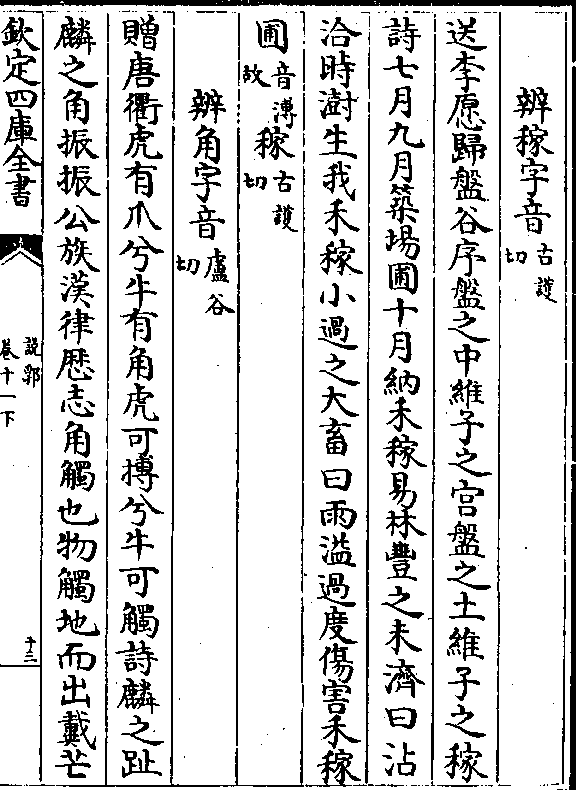 辨稼字音古護切
送李愿歸盤谷序盤之中維子之宫盤之土維子之稼
詩七月九月築場圃十月納禾稼易林豐之未濟曰沾
洽時澍生我禾稼小過之大畜曰雨溢過度傷害禾稼
圃音溥故稼古護切
辨角字音盧谷切
贈唐衢虎有爪兮牛有角虎可搏兮牛可觸詩麟之趾
麟之角振振公族漢律厯志角觸也物觸地而出戴芒
欽定四庫全書
說郛
卷十一下
十三